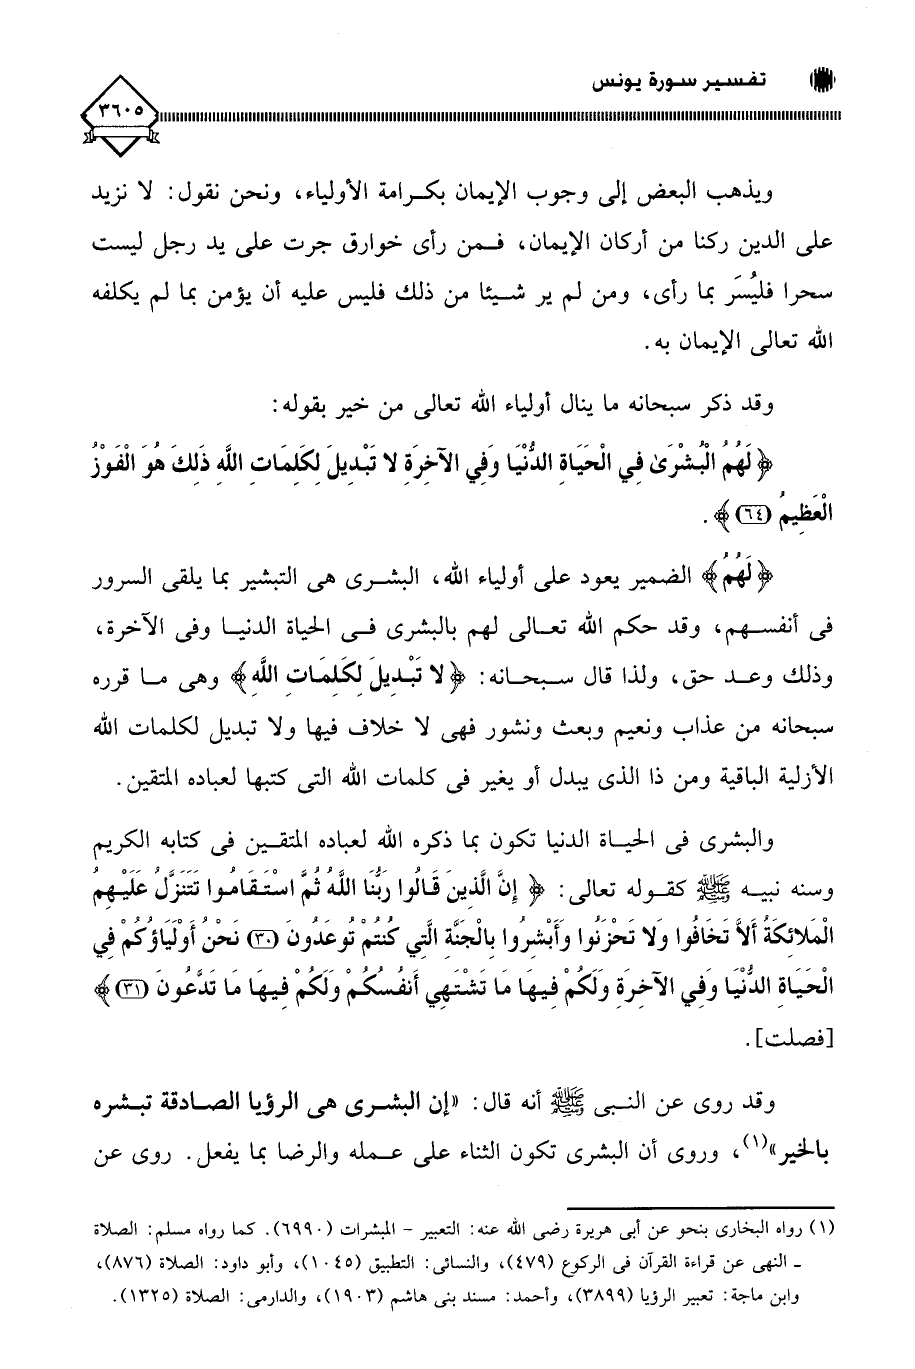 تفسير سورة يونس
٣٦٠٥
ويذهب البعض إلى وجوب الإيمان بكرامة الأولياء، ونحن نقول: لا نزيد
على الدين ركنا من أركان الإيمان، فمن رأى خوارق جرت على يد رجل ليست
سحرا فليُسَر بما رأى، ومن لم ير شيئا من ذلك فليس عليه أن يؤمن بما لم يكلفه
الله تعالى الإيمان به.
وقد ذكر سبحانه ما ينال أولياء الله تعالى من خير بقوله:
﴿لَهُمُ الْبُشْرَىٰ فِي الْحَيَاةِ الدُّنْيَا وَفِي الآخِرَةِ لا تَبْدِيلَ لِكَلِمَاتِ اللَّهِ ذَلِكَ هُوَ الْفَوْزُ
الْعَظِيمُ (٦٤)﴾.
﴿لَهُمُ﴾ الضمير يعود على أولياء الله، البشرى هى التبشير بما يلقى السرور
فى أنفسهم، وقد حكم الله تعالى لهم بالبشرى فى الحياة الدنيا وفى الآخرة،
وذلك وعد حق، ولذا قال سبحانه: ﴿لا تَبْدِيلَ لِكَلِمَاتِ اللَّهِ﴾ وهى ما قرره
سبحانه من عذاب ونعيم وبعث ونشور فهى لا خلاف فيها ولا تبديل لكلمات الله
الأزلية الباقية ومن ذا الذى يبدل أو يغير فى كلمات الله التى كتبها لعباده المتقين.
والبشرى فى الحياة الدنيا تكون بما ذكره الله لعباده المتقين فى كتابه الكريم
وسنه نبيه ﷺ كقوله تعالى: ﴿إِنَّ الَّذِينَ قَالُوا رَبُّنَا اللَّهُ ثُمَّ اسْتَقَامُوا تَتَنَزَّلُ عَلَيْهِمُ
الْمَلائِكَةُ أَلاَّ تَخَافُوا وَلا تَحْزَنُوا وَأَبْشِرُوا بِالْجَنَّةِ الَّتِي كُنتُمْ تُوعَدُونَ (٣٠) نَحْنُ أَوْلِيَاؤُكُمْ فِي
الْحَيَاةِ الدُّنْيَا وَفِي الآخِرَةِ وَلَكُمْ فِيهَا مَا تَشْتَهِي أَنفُسُكُمْ وَلَكُمْ فِيهَا مَا تَدَّعُونَ (٣١)﴾
[فصلت].
وقد روى عن النبى ﷺ أنه قال: «إن البشرى هى الرؤيا الصادقة تبشره
بالخير»(١)، وروى أن البشرى تكون الثناء على عمله والرضا بما يفعل. روى عن
(١) رواه البخارى بنحو عن أبى هريرة رضى الله عنه: التعبير - المبشرات (٦٩٩٠). كما رواه مسلم: الصلاة
ـ النهى عن قراءة القرآن فى الركوع (٤٧٩)، والنسائى: التطبيق (١٠٤٥)، وأبو داود: الصلاة (٨٧٦)،
وابن ماجة: تعبير الرؤيا (٣٨٩٩)، وأحمد: مسند بنى هاشم (١٩٠٣)، والدارمى: الصلاة (١٣٢٥).